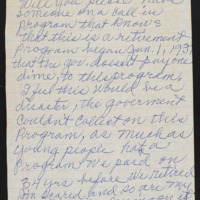 Will you please have
someone on a call-in
Program that know's
that this is a retirement
Program began Jan. 1, 193
that the gov. dosent pay one
dime, to this program,
I feel this would be a
disaster, the goverment
Couldn't collect on this
Program, as much as
young people half a
Program We paid on
34 yrs before We retired
Im scared and so are my